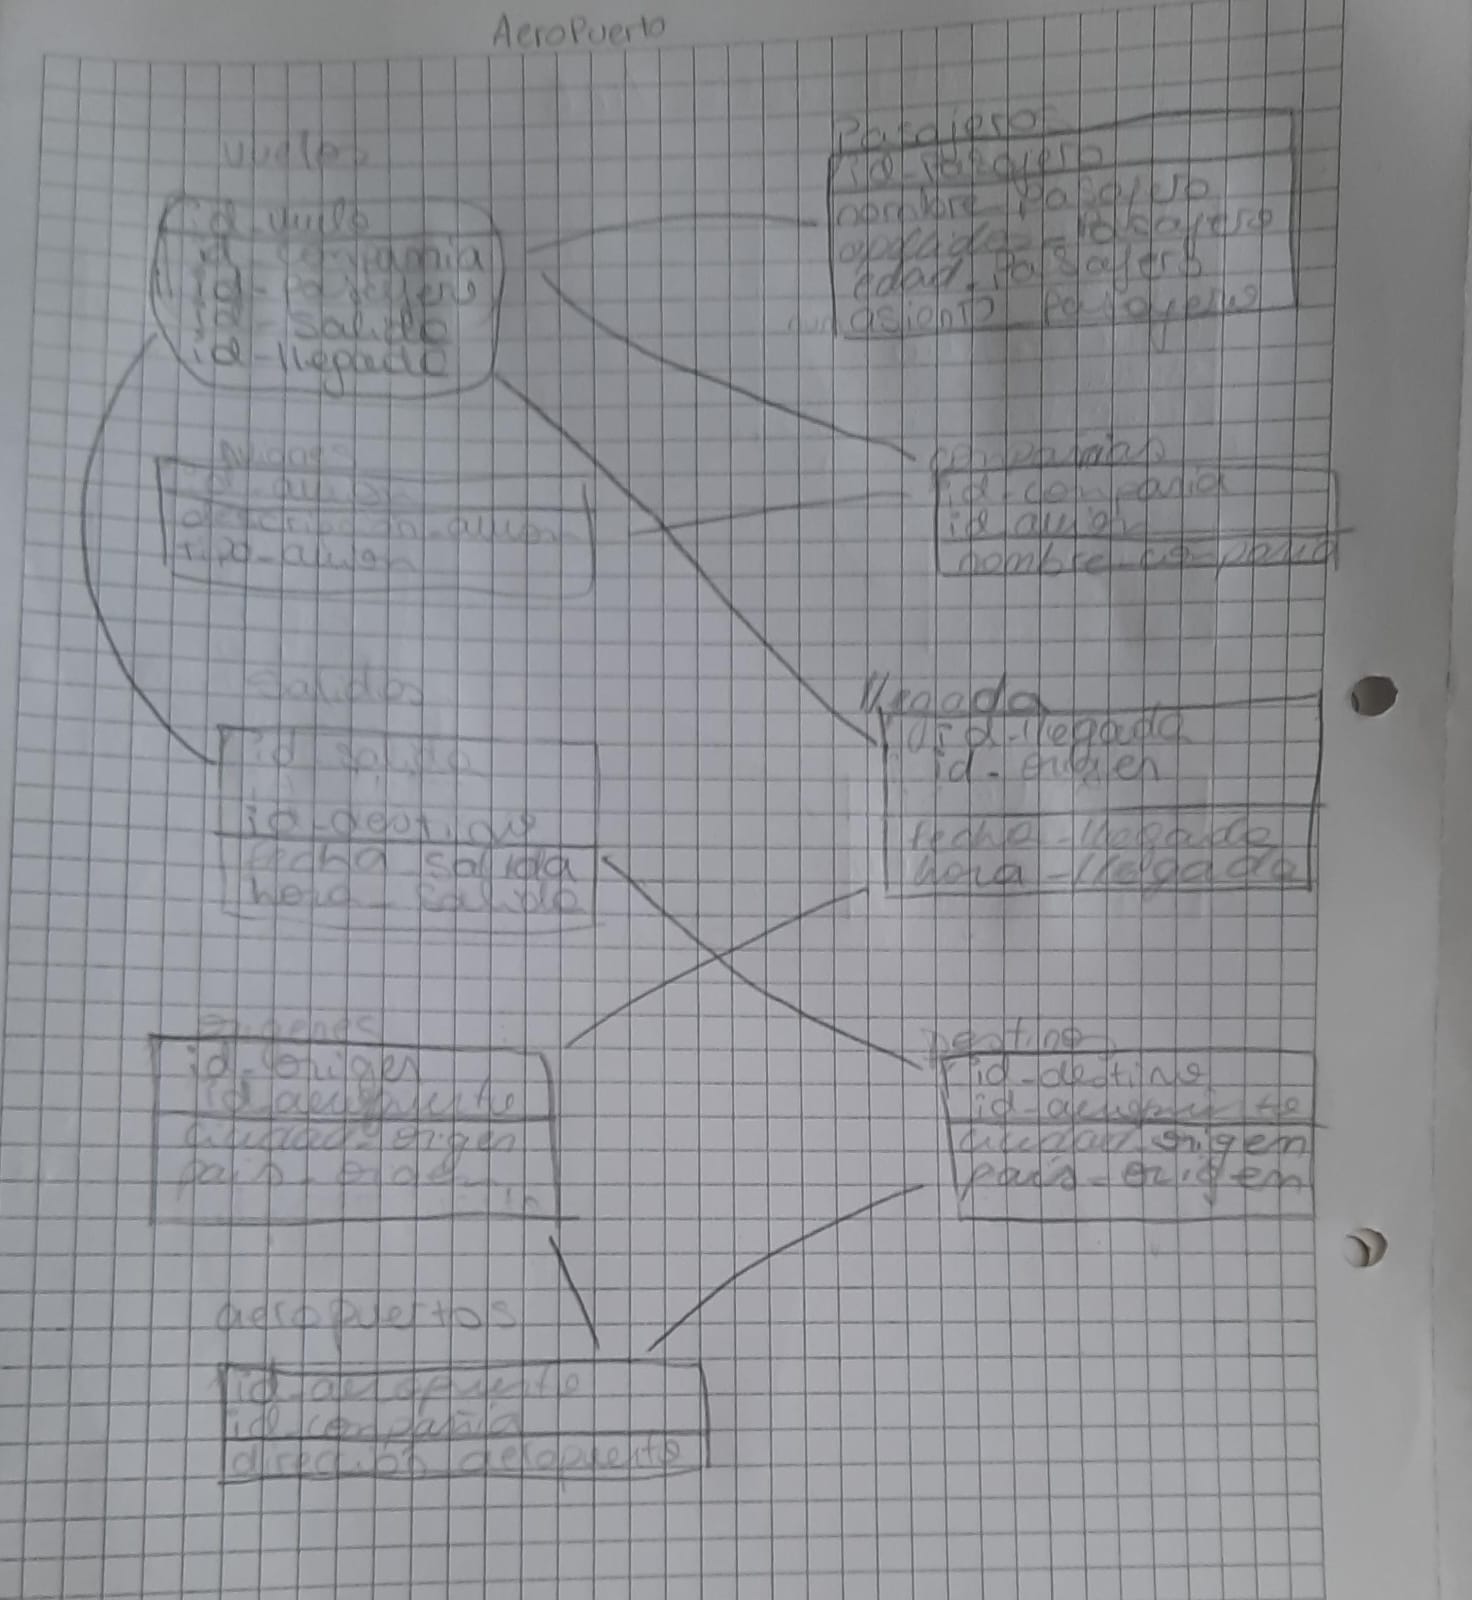 AeroPuerto
vuelos
id_vuelo
id_compañia
id-pasajero
id-salida
id-llegada
Pasajeros
id_pasajero
nombre_pasajero
edad_pasajero
asiento_pasajero
Aviones
id_avion
descripcion_avion
tipo_avion
compañias
id_compañia
id_avion
nombre_compañia
salidas
id_salida
id_destino
fecha_salida
hora_salida
llegada
id-llegada
id-origen
fecha-llegada
hora-llegada
origenes
id-origen
id_aeropuerto
ciudad-origen
pais-origen
destino
id-destino
id-aeropuerto
ciudad_origen
pais-origen
aeropuertos
id_aeropuerto
id_compañia
direccion_aeropuerto